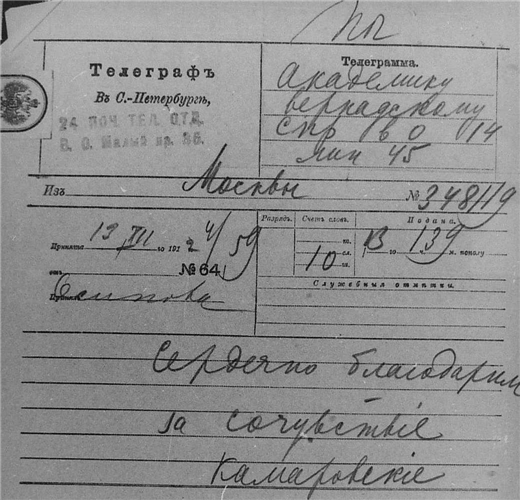 Телеграфъ
Въ С.-Петербургѣ,
24 ПОЧ. ТЕЛ. ОТД.
В. О. Малый пр. 36.
Телеграмма.
Академику
Вернадскому
Спр В О 14
лин 45
Изъ Москвы
№ 348119
Принята 19 VII 1912
№ 64
Осипова
Разрядъ.
Счетъ словъ.
Подана.
10 сл.
13 го 139 м. пополу
Служебныя отмѣтки.
Сердечно благодарим
за сочувствіе
Камаровскіе